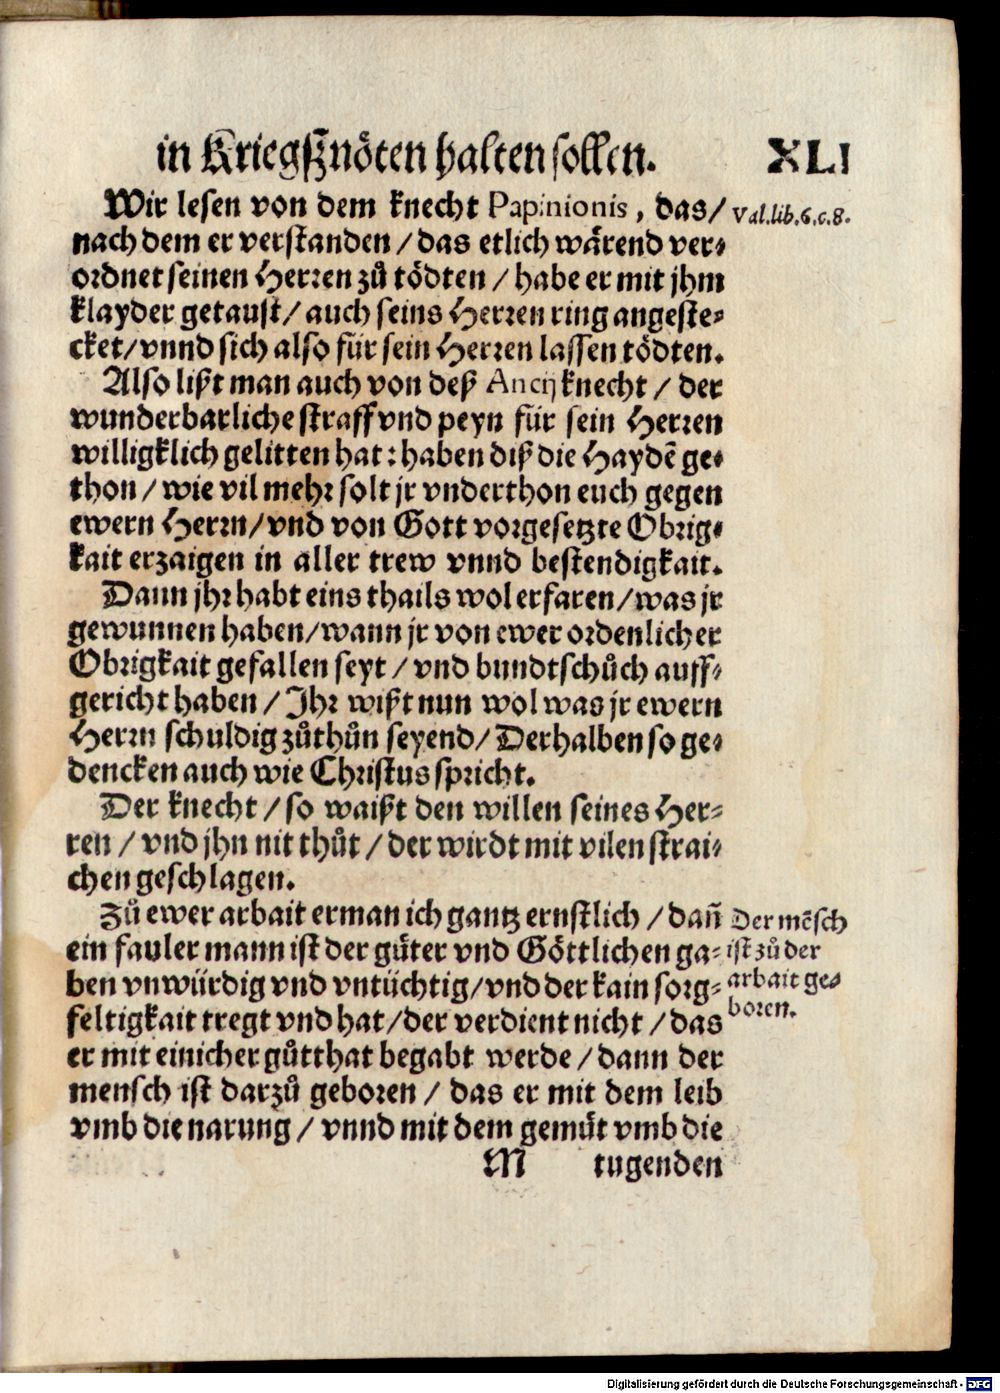 in Kriegßznöten halten sollen. XLI
Wir lesen von dem knecht Papinionis, das/ Val.lib.6.c.8.
nach dem er verstanden / das etlich wärend ver⸗
ordnet seinen Herren zů tödten / habe er mit jhm
klayder getaust/ auch seins Herren ring angeste⸗
cket/ vnnd sich also für sein Herren lassen tödten.
Also lißt man auch von deß Ancij knecht / der
wunderbarliche straff vnd peyn für sein Herren
willigklich gelitten hat: haben diß die Haydẽ ge⸗
thon / wie vil mehr solt jr vnderthon euch gegen
ewern Herrn/ vnd von Gott vorgesetzte Obrig⸗
kait erzaigen in aller trew vnnd bestendigkait.
Dann jhr habt eins thails wol erfaren/ was jr
gewunnen haben/ wann jr von ewer ordenlicher
Obrigkait gefallen seyt / vnd bundtschůch auff⸗
gericht haben / Jhr wißt nun wol was jr ewern
Herrn schuldig zůthůn seyend/ Derhalben so ge⸗
dencken auch wie Christus spricht.
Der knecht / so waißt den willen seines Her⸗
ren / vnd jhn nit thůt / der wirdt mit vilen strai⸗
chen geschlagen.
Zů ewer arbait erman ich gantz ernstlich / dañ
ein fauler mann ist der gůter vnd Göttlichen ga⸗
ben vnwürdig vnd vntüchtig/ vnd der kain sorg⸗
feltigkait tregt vnd hat/ der verdient nicht / das
er mit einicher gůtthat begabt werde / dann der
mensch ist darzů geboren / das er mit dem leib
vmb die narung / vnnd mit dem gemüt vmb die
Der mẽsch
ist zů der
arbait ge⸗
boren.
M tugenden
Digitalisierung gefördert durch die Deutsche Forschungsgemeinschaft - DFG